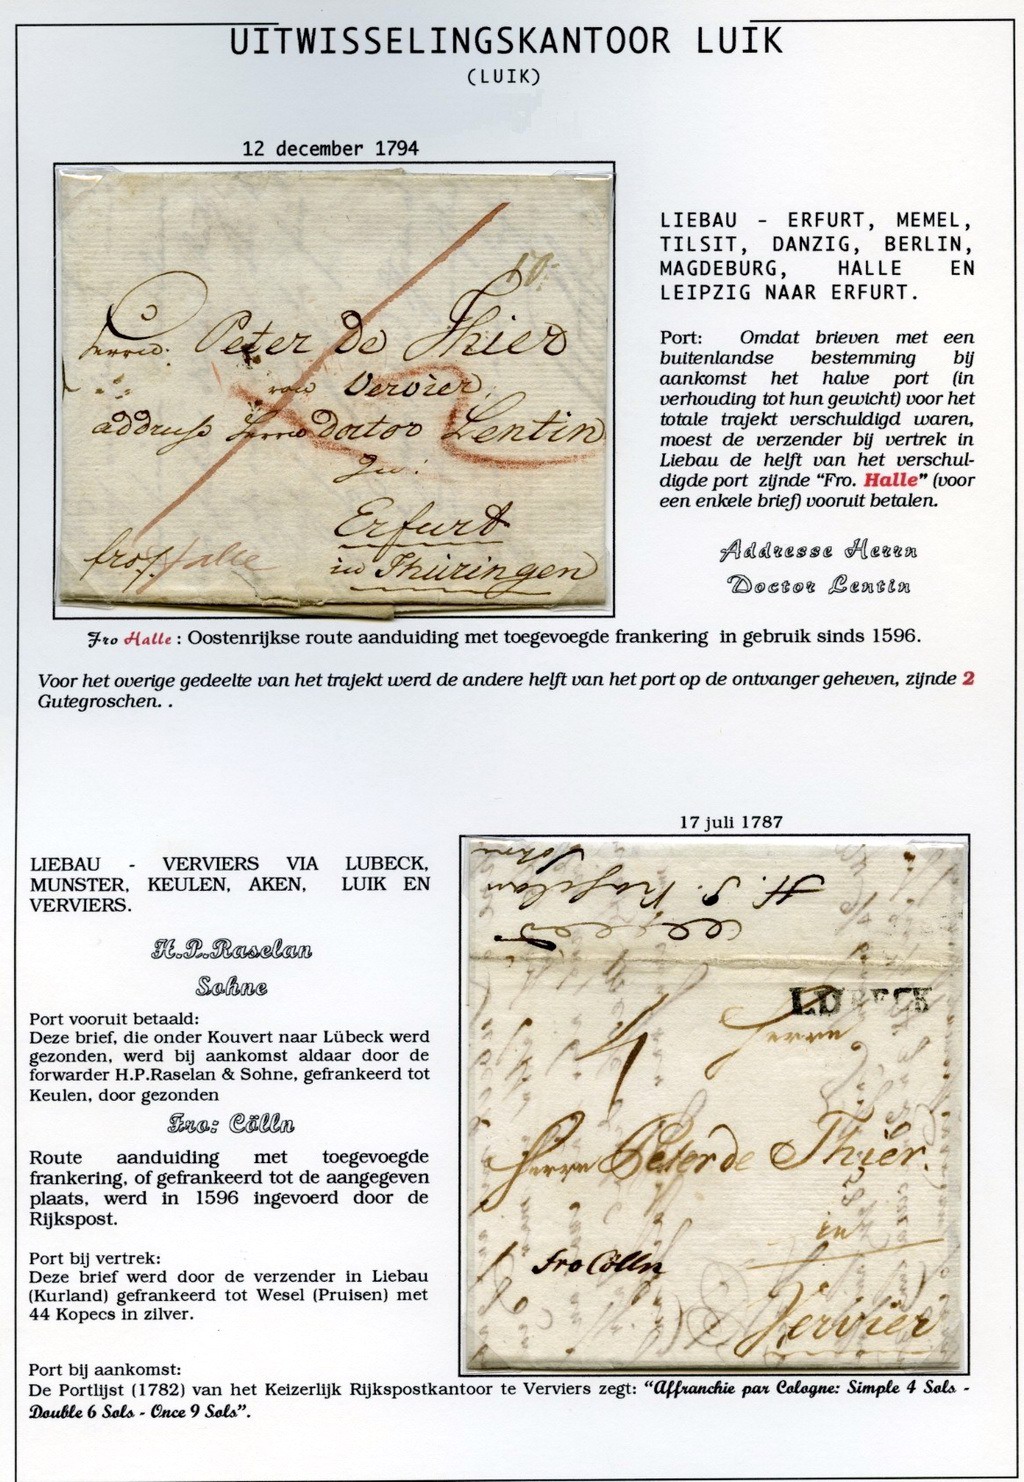 UITWISSELINGSKANTOOR LUIK
(LUIK)
12 december 1794
10:
Herrn: Peter de Thier
von Vervier,
address Herrn doctor Lentin
Zu:
Erfurt
in Thüringen
fro Halle
LIEBAU - ERFURT, MEMEL,
TILSIT, DANZIG, BERLIN,
MAGDEBURG, HALLE EN
LEIPZIG NAAR ERFURT.
Port: Omdat brieven met een
buitenlandse bestemming bij
aankomst het halve port (in
verhouding tot hun gewicht) voor het
totale trajekt verschuldigd waren,
moest de verzender bij vertrek in
Liebau de helft van het verschul-
digde port zijnde “Fro. Halle” (voor
een enkele brief) vooruit betalen.
Addresse Herrn
Doctor Lentin
Fro Halle : Oostenrijkse route aanduiding met toegevoegde frankering in gebruik sinds 1596.
Voor het overige gedeelte van het trajekt werd de andere helft van het port op de ontvanger geheven, zijnde 2
Gutegroschen. .
17 juli 1787
LIEBAU - VERVIERS VIA LUBECK,
MUNSTER, KEULEN, AKEN, LUIK EN
VERVIERS.
H.P.Raselan
Sohne
Port vooruit betaald:
Deze brief, die onder Kouvert naar Lübeck werd
gezonden, werd bij aankomst aldaar door de
forwarder H.P.Raselan & Sohne, gefrankeerd tot
Keulen, door gezonden
Fro: Cölln
Route aanduiding met toegevoegde
frankering, of gefrankeerd tot de aangegeven
plaats, werd in 1596 ingevoerd door de
Rijkspost.
Port bij vertrek:
Deze brief werd door de verzender in Liebau
(Kurland) gefrankeerd tot Wesel (Pruisen) met
44 Kopecs in zilver.
H. P. Raselan
Sohne
LUBECK
4
Herrn
Herrn Peter de Thier.
in
Fro Cölln
Vervier
Port bij aankomst:
De Portlijst (1782) van het Keizerlijk Rijkspostkantoor te Verviers zegt: “Affranchie par Cologne: Simple 4 Sols -
Double 6 Sols - Once 9 Sols”.